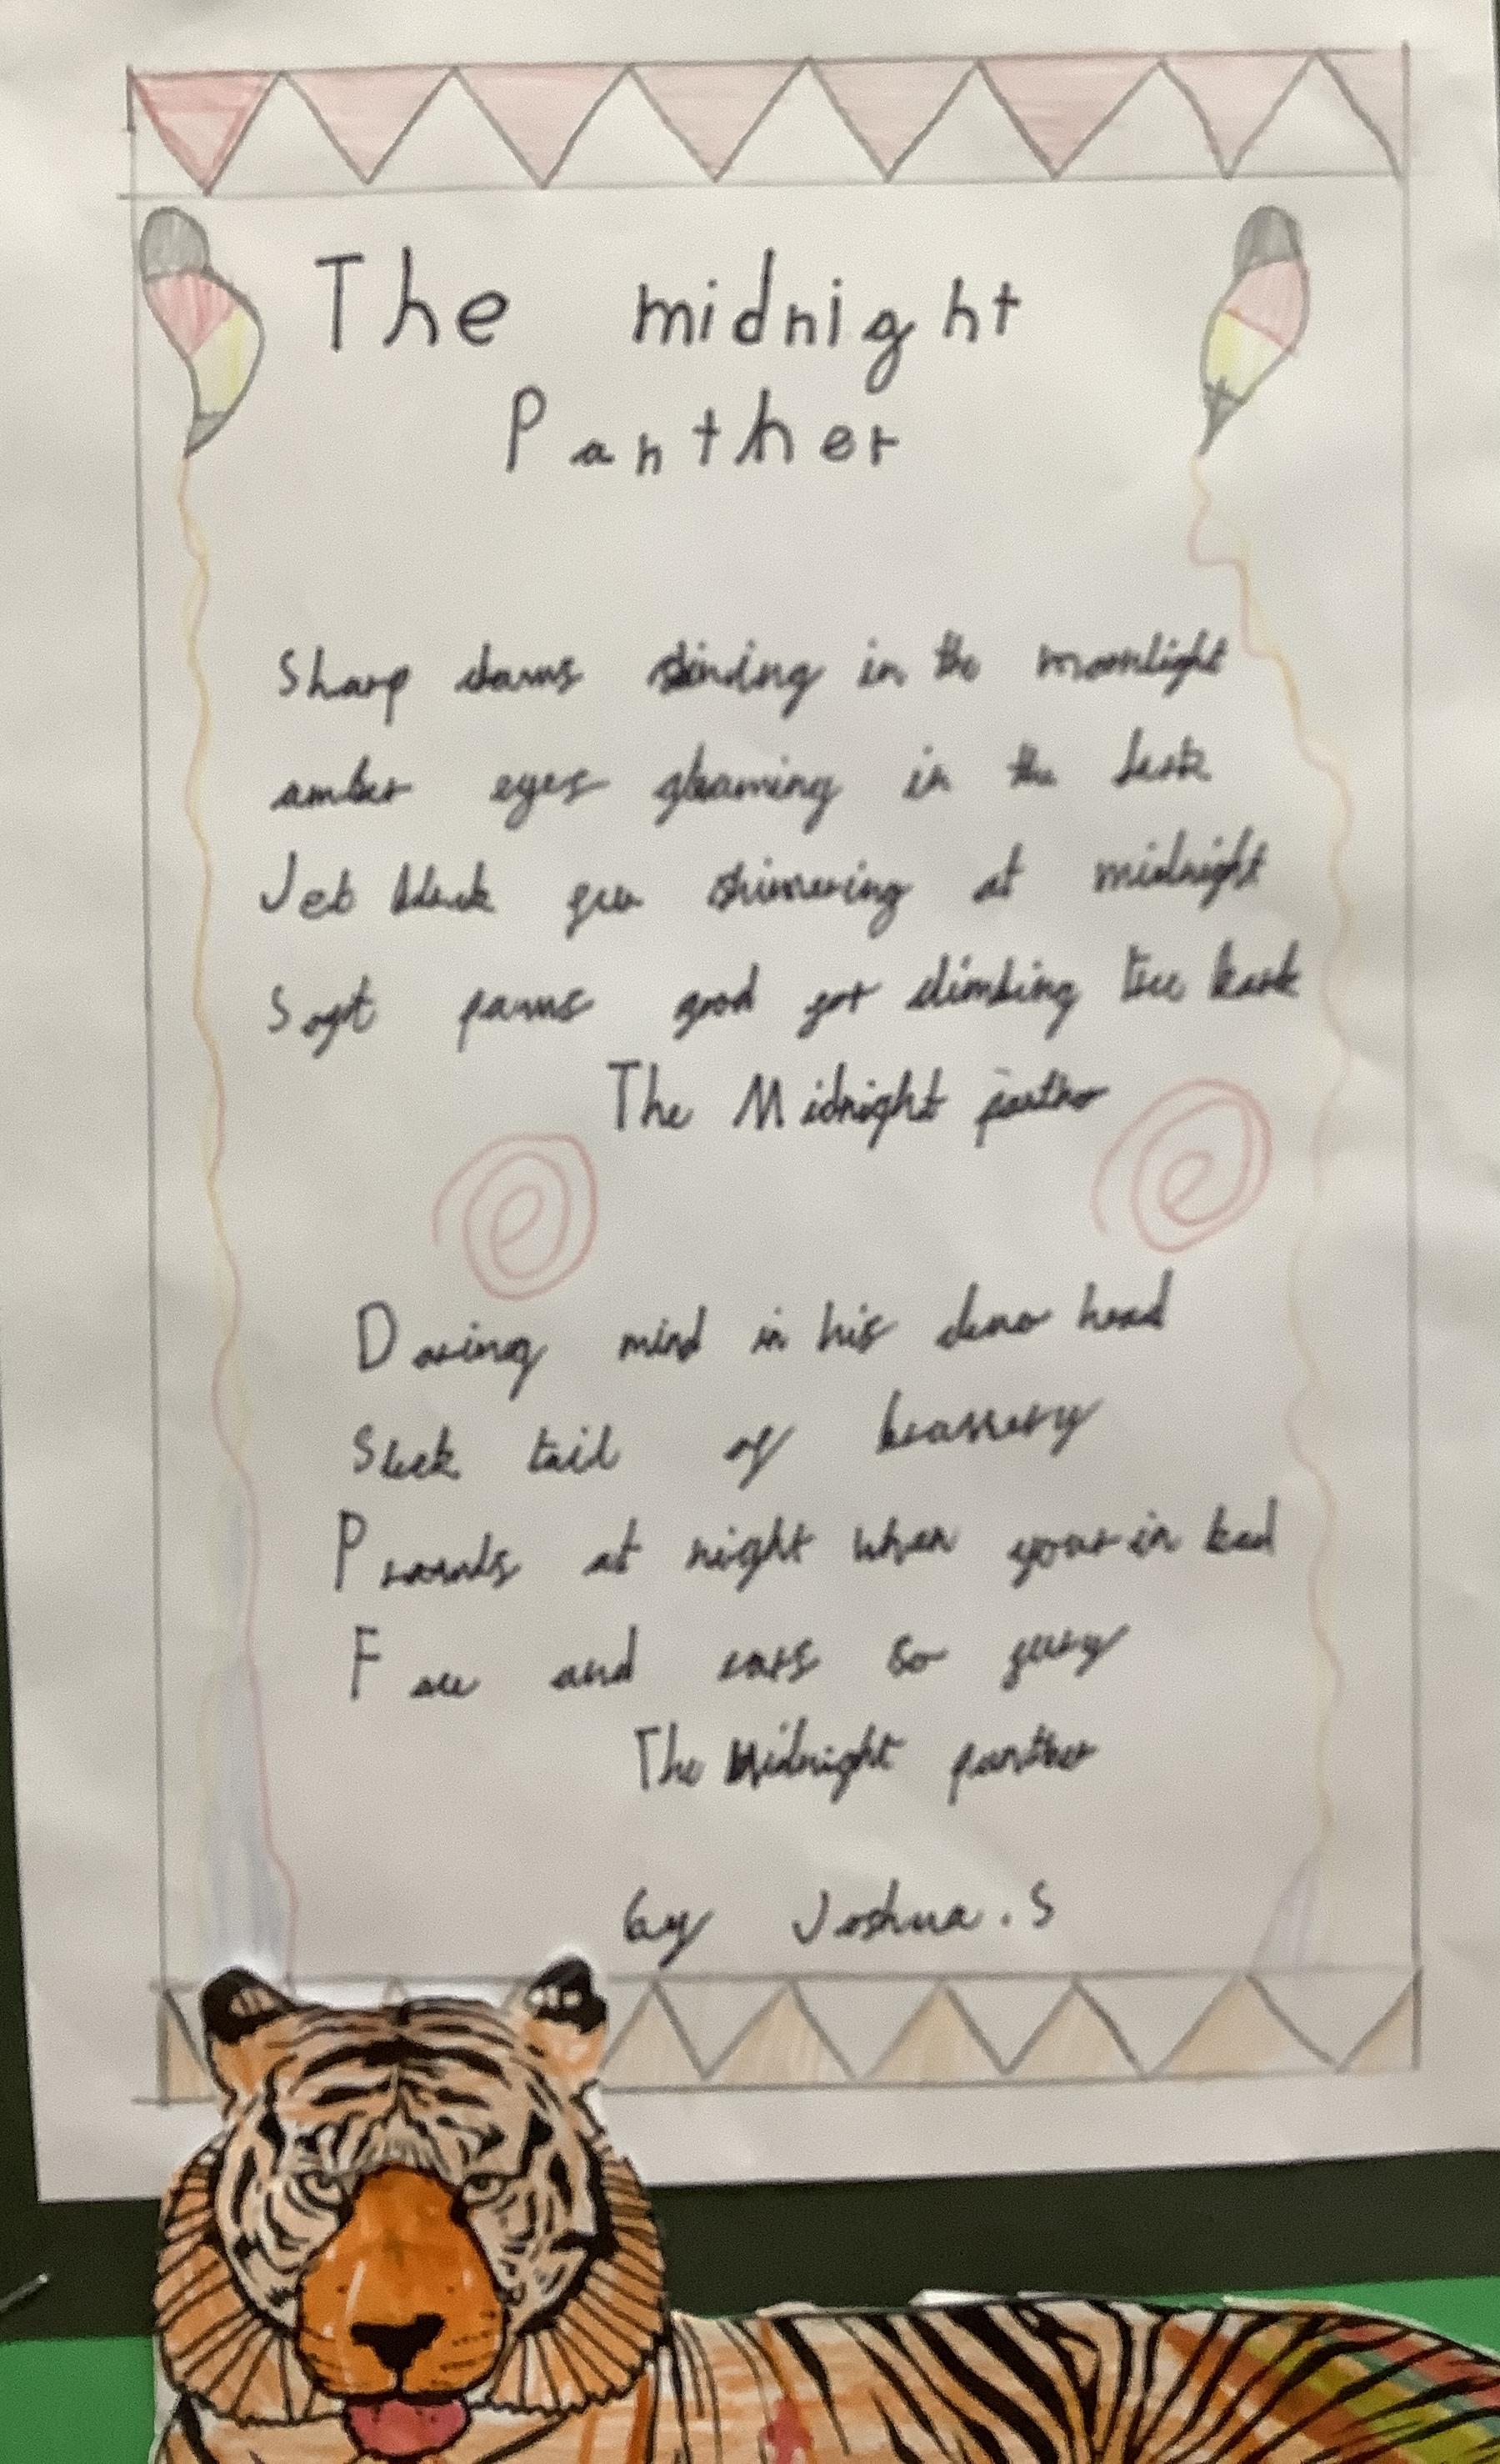 The midnight
Panther
Sharp claws shining in the moonlight
amber eyes gleaming in the dark
Jet black fur shimmering at midnight
Soft paws good for climbing tree bark
The Midnight panther
Daring mind in his head
Sleek tail of
Prowls at night when your in bed
Face and ears so furry
The Midnight panther
by Joshua.S